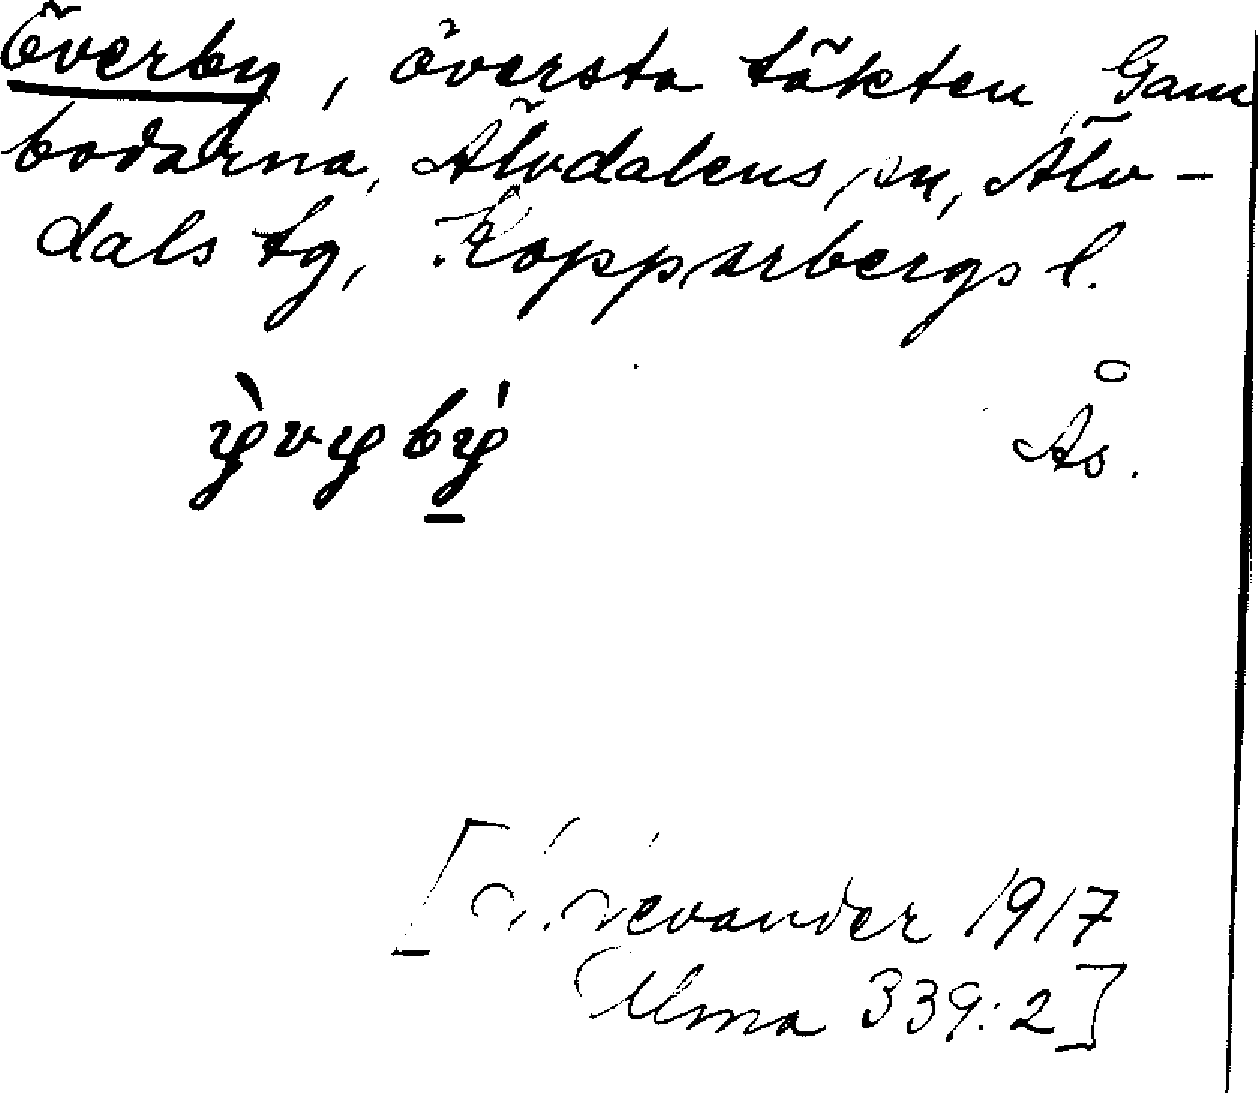 Överby, översta täkten, Gam
bodarna, Älvdalens sn, Älv-
dals tg, Kopparbergs l.
Ås.
Levander 1917
Ulma 339:2]